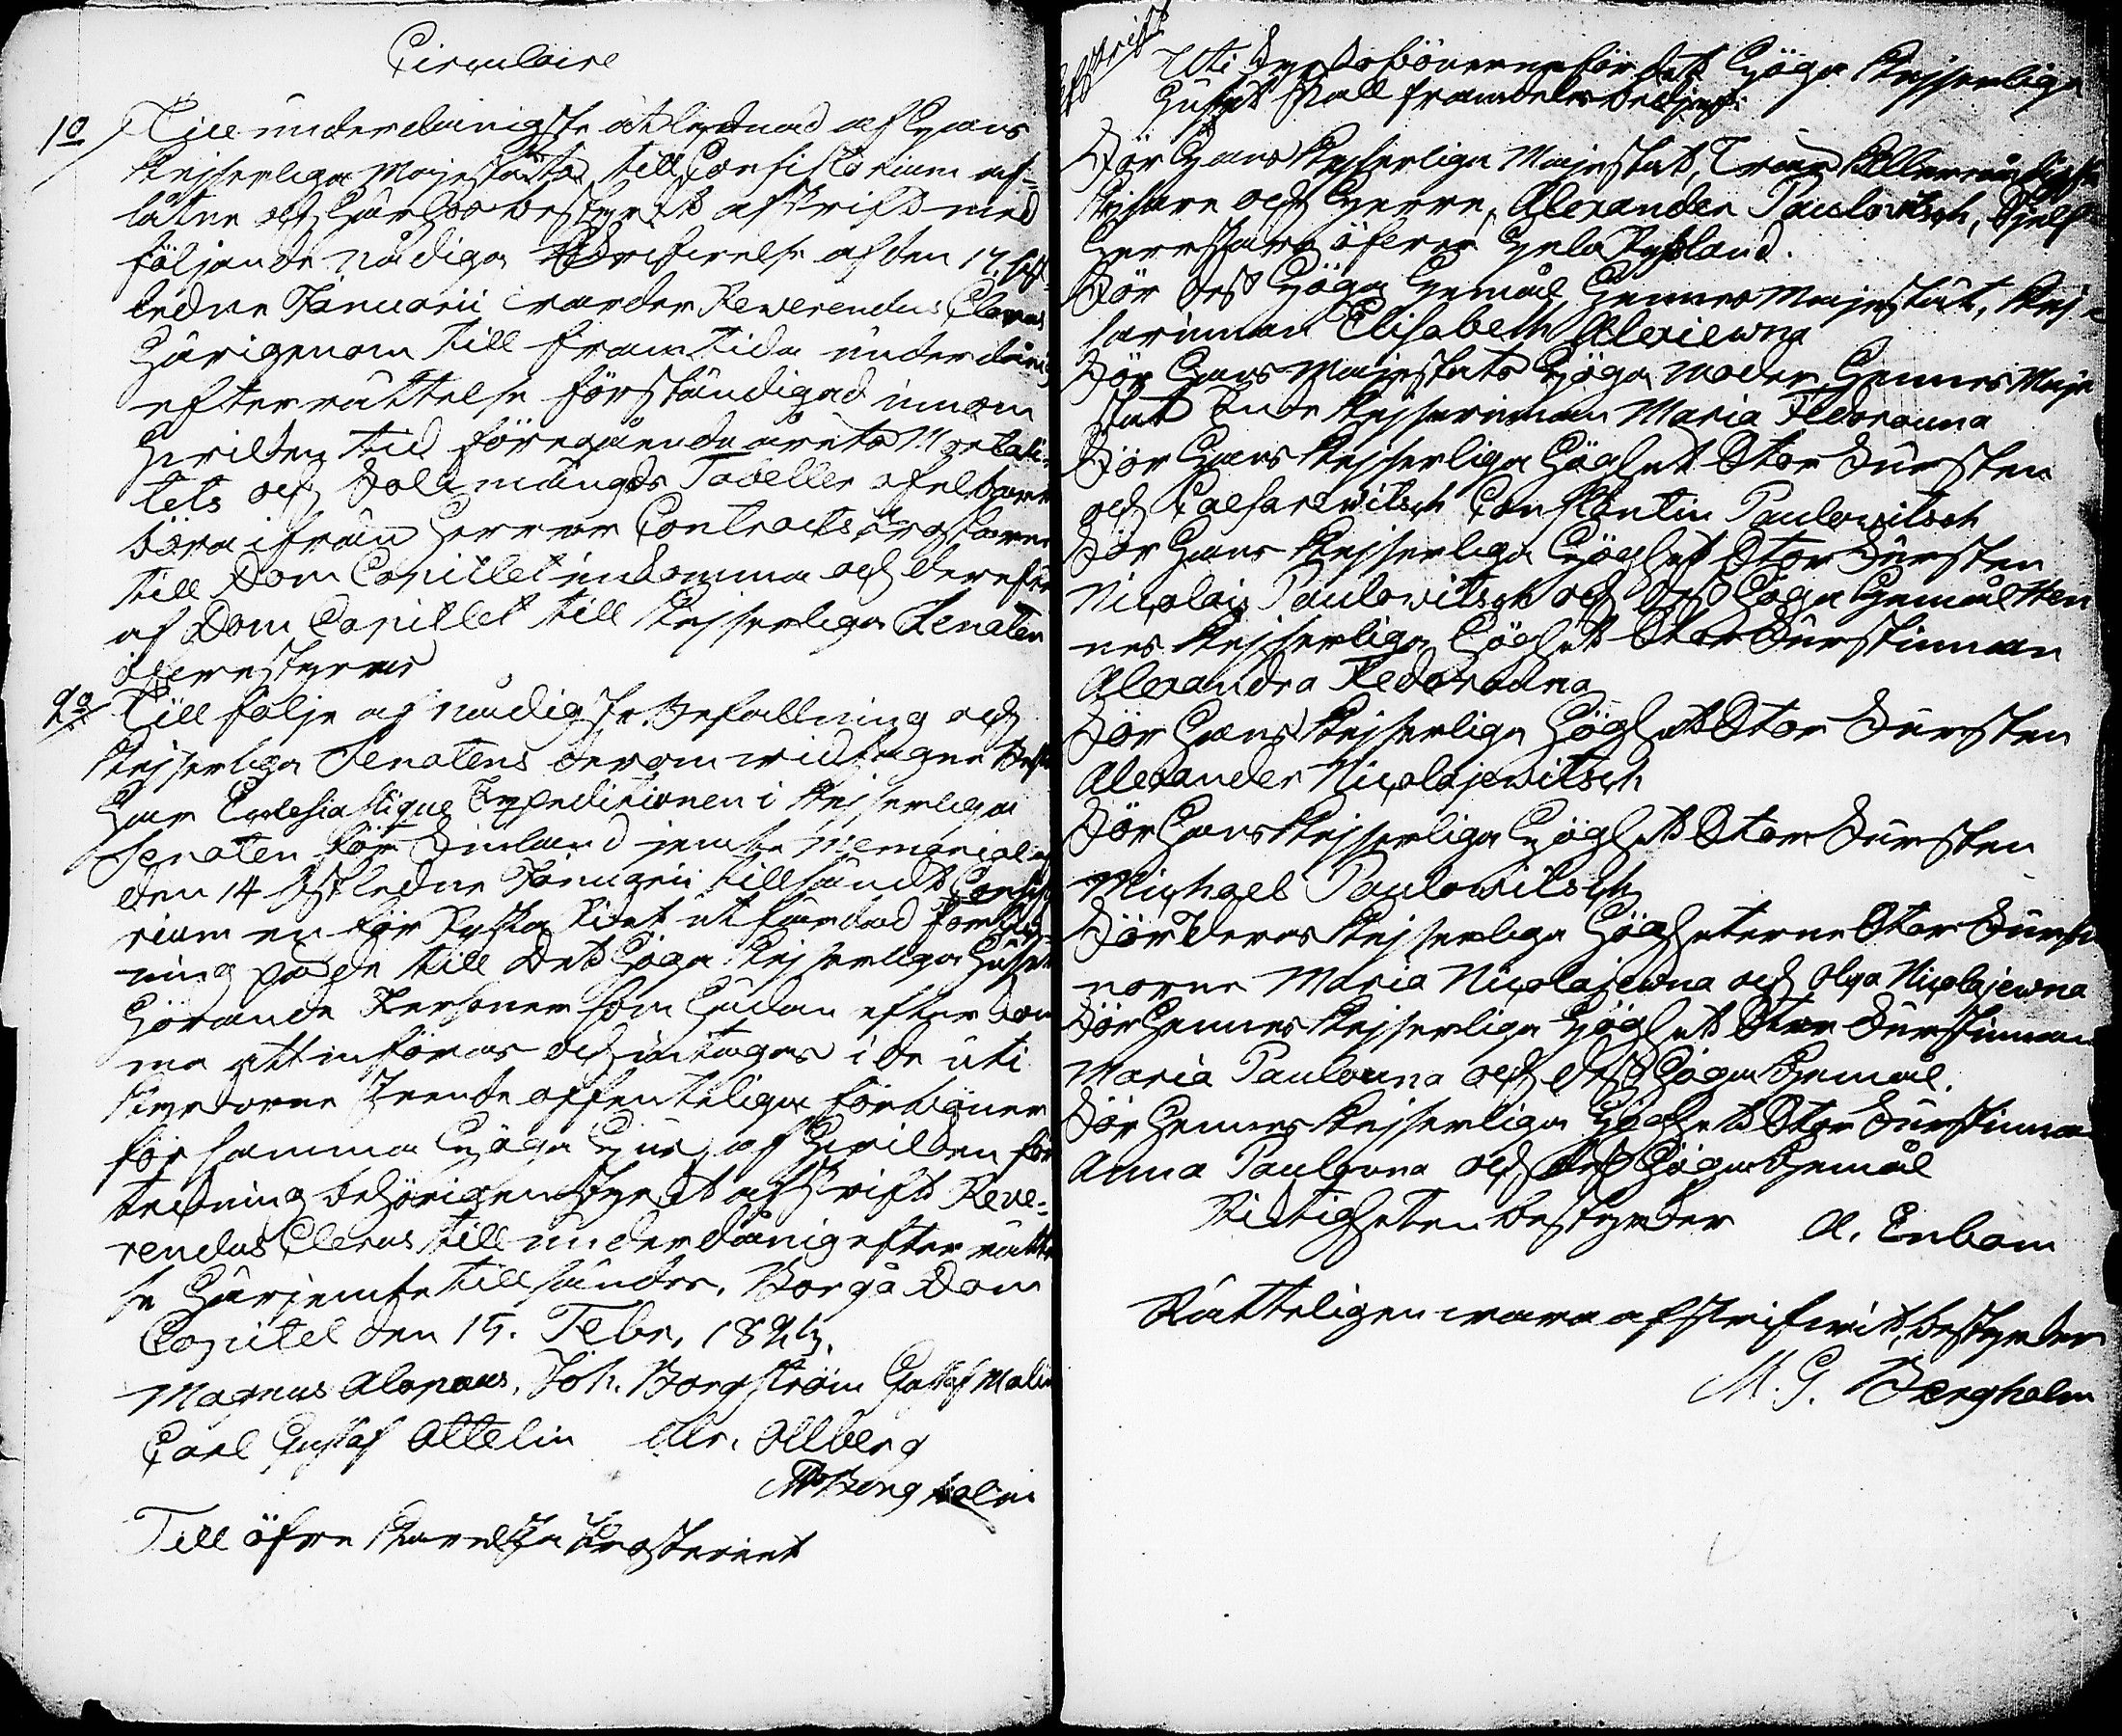 Circulaire
1o/ Till underdånigste åtlydnad af Hans
Kejserliga Majestäts till Consistorium af-
låtne och härhos bestyrkt afskrift med
följande nådiga Skrifwelse af den 17. sist-
ledne Januarii warder Reverendus Clerus
härigenom till framtida underdånig
efterrättelse förständigad innom
hwilken tid föregående årets Mortali-
tets och Folkmängds Tabeller ofelbart
böra ifrån Herrar Contracts Prostarne
till Dom Capitlet inkomma och derefter
af Dom Capitlet till Kejserliga Senaten
öfwerstyras
2o/ Till följe af nådigste Befallning och
Kejserliga Senatens derom widtagne
har Ecclesiastique Expeditionen i Kejserliga
Senaten för Finland jemte Memorial af
den 14 sistledne Januarii tillsändt Consisto
rium en för Ryska Riket utfärdad förteck-
ning på de till Det Höga Kejserliga Huset
hörande Personer som hädan efter kom
ma att införas och intagas i de uti
Kyrkorne skeende offentliga förböner
för samma Höga Hus, af hwilken för
teckning behörigen styrkt afskrift Reve-
rendus Clerus till underdånig efterrättel
se härjemte tillsändes. Borgå Dom
Capitel den 15. Febr. 1823.
Magnus Alopaeus. Joh. Borgström Gustaf Malin
Carl Gustaf Ottelin Alr. Ollberg
M G Bergholm
Till öfre Karelska Prosteriet
Afskrift
Uti Kyrkobönerne för det Höga Kejserliga
Huset skall framdeles bedjas:
För Hans Kejserliga Majestät, Wår Allernådigste
Kejsare och Herre, Alexander Paulowitsch, Sjelf
Herrskare öfwer hela Ryssland.
För dess Höga Gemål Hennes Majestät, Kej
sarinnan Elisabeth Alexiewna
För Hans Majestäts Höga Moder Hennes Maje
stät Enke Kejsarinnan Maria Fedorowna
För Hans Kejserliga Höghet Stor Fursten
och Caesarewitsch Constantin Paulowitsch
För Hans Kejserliga Höghet Stor Fursten
Nicolai Paulowitsch och dess Höga Gemål Hen
nes Kejserliga Höghet Stor Furstinnan
Alexandra Fedorowna
För Hans Kejserliga Höghet Stor Fursten
Alexander Nicolajewitsch
För Hans Kejserliga Höghet Stor Fursten
Michael Paulowitsch
För Deras Kejserliga Högheterne Stor Furstin
norne Maria Nicolajewna och Olga Nicolajewna
För Hennes Kejserliga Höghet Stor Furstinnan
Maria Paulowna och dess Höga Gemål.
För Hennes Kejserliga Höghet Stor Furstinnan
Anna Paulowna och dess Höga Gemål
Riktigheten bestyrker A. Enbom
Rätteligen wara afskrifwit, bestyrker
M. G. Bergholm